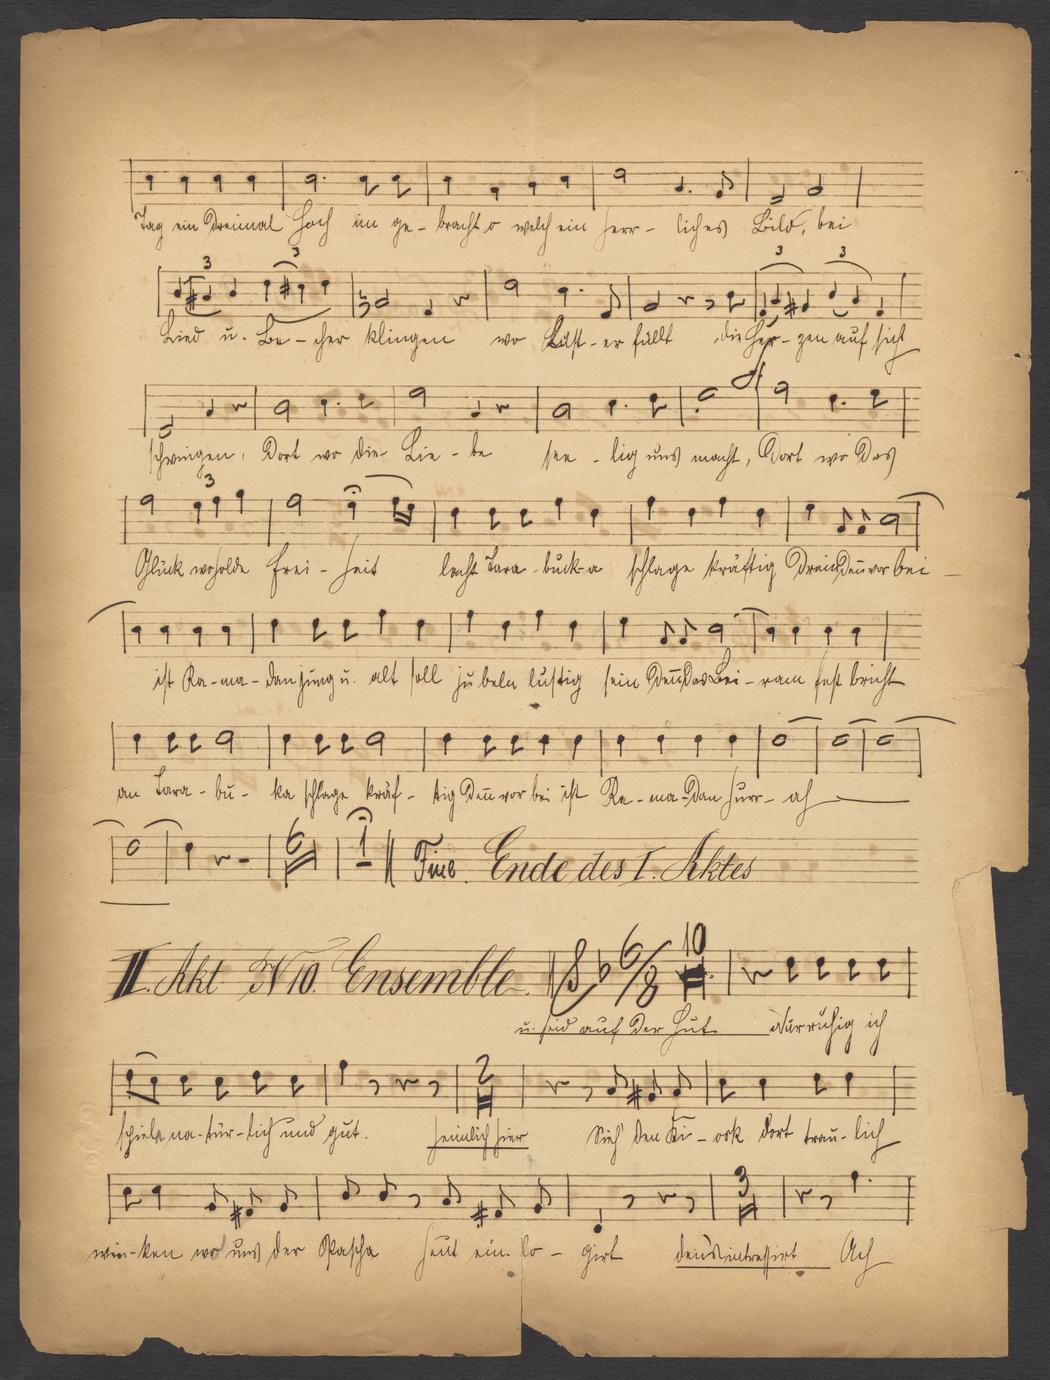 Tag ein Dreimal Hoch im ge-bracht o welch ein herr-liches Bild, bei
3 3 3 3
Lied u. Be-cher klingen wo Lust er füllt die Her-zen auf sich
schwingen, Dort wo die Lie-be see-lig uns macht, Dort wo Das
3
Glück wo holde Frei-heit lacht Tara-buck-a schlage kräftig Drein Deñ vor bei-
ist Ra-ma-dan jung u. alt soll ju beln lustig sein Deñ Das Bei-ram fest bricht
an Tara-bu-ka schlage kräf-tig Deñ vor bei ist Ra-ma-Dan Hurr-ah
6 1 Fine. Ende des I. Aktes
II. Akt N 10. Ensemble. 6/8 10
u. seid auf Der Hut Nur ruhig ich
2
spiele na-tür-lich und gut. heimlich hier Sieh' Den Ki-osk dort trau-lich
3
win-ken wo uns der Pascha heut ein-lo-girt Ach